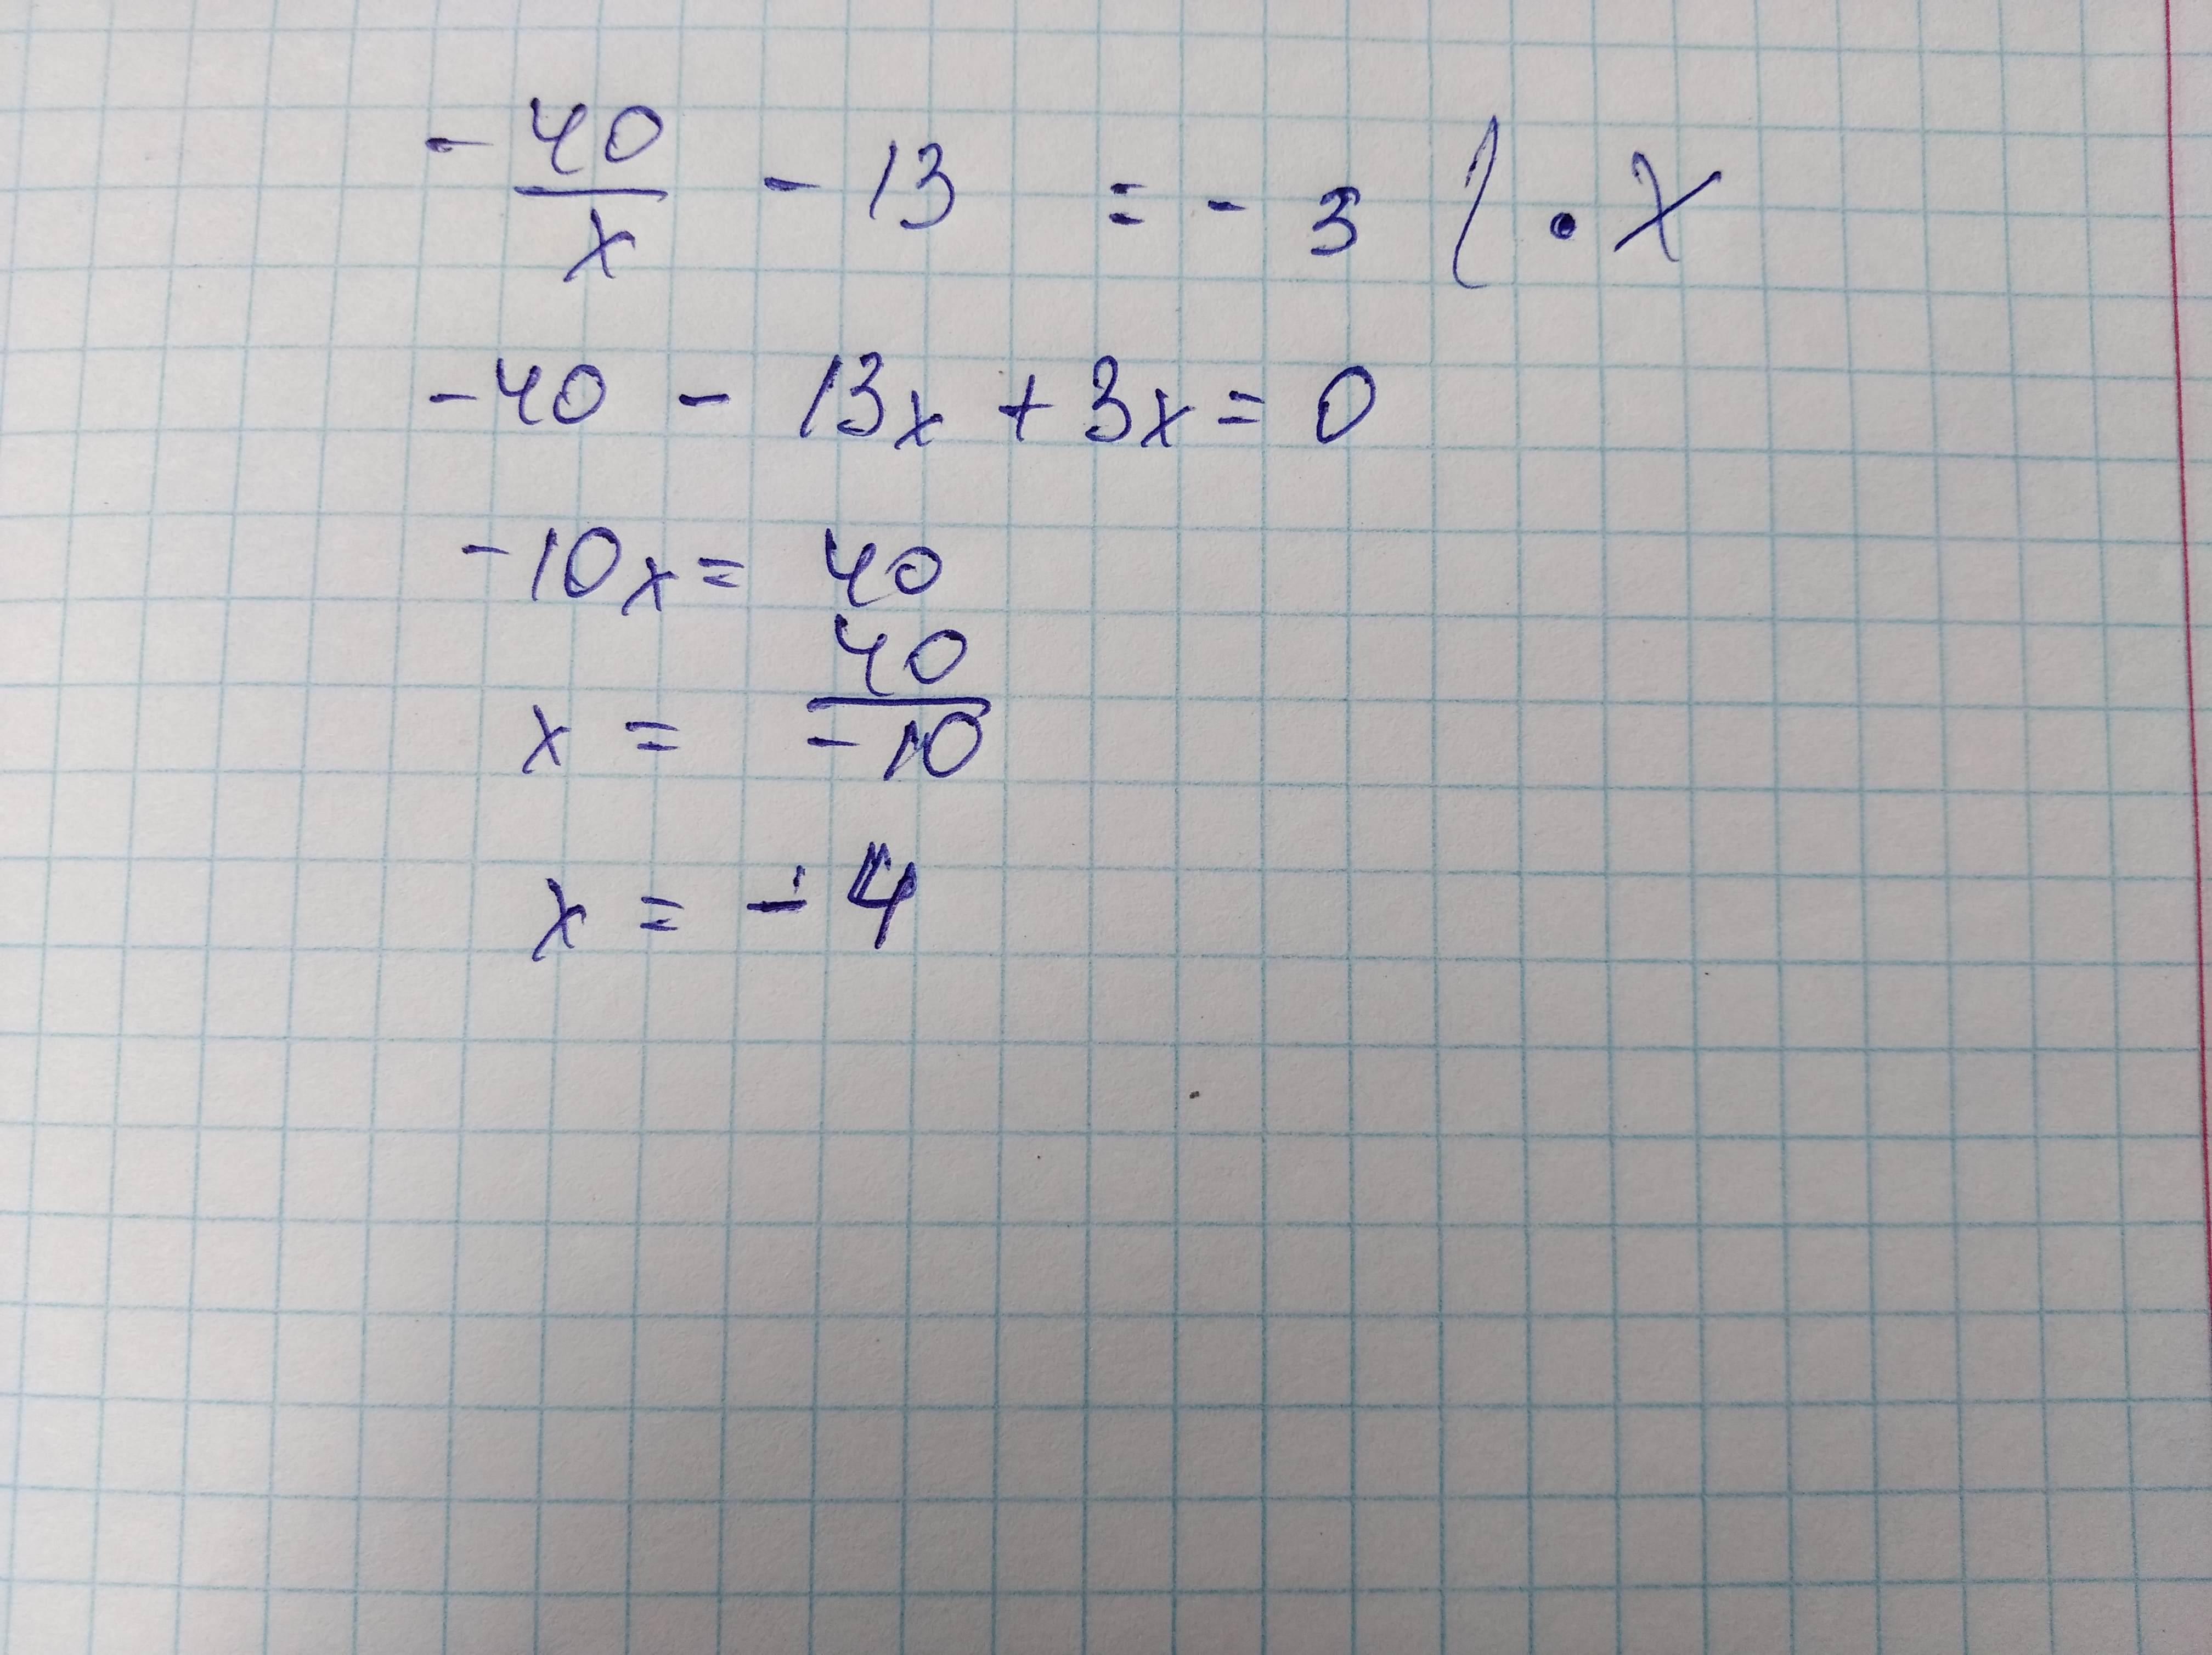 -40/x - 13 = -3 | · x
-40 - 13x + 3x = 0
-10x = 40
x = 40/-10
x = -4